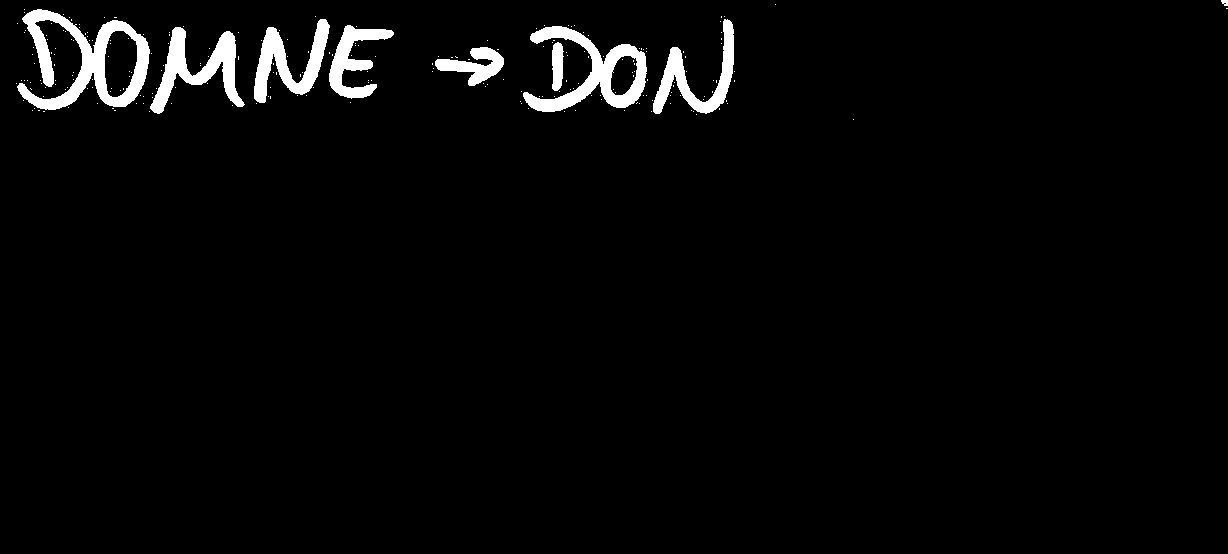 DOMNE → DON